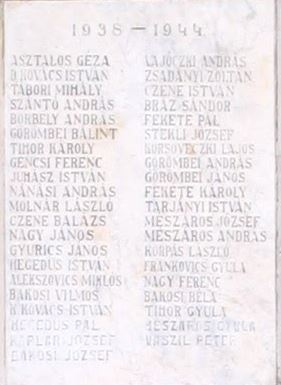 1938 – 1944.
ASZTALOS GÉZA
D. KOVÁCS ISTVÁN
TÁBORI MIHÁLY
SZÁNTÓ ANDRÁS
BORBÉLY ANDRÁS
GÖRÖMBEI BÁLINT
TIMOR KÁROLY
GENCSI FERENC
JUHÁSZ ISTVÁN
NÁNÁSI ANDRÁS
MOLNÁR LÁSZLÓ
CZENE BALÁZS
NAGY JÁNOS
GYURICS JÁNOS
HEGEDŰS ISTVÁN
ALEKSZOVICS MIKLÓS
BAKOSI VILMOS
KOVÁCS ISTVÁN
HEGEDŰS PÁL
KAPLÁR JÓZSEF
BAKOSI JÓZSEF
LAJÓCZKI ANDRÁS
ZSADÁNYI ZOLTÁN
CZENE ISTVÁN
BRÁZ SÁNDOR
FEKETE PÁL
STEKLI JÓZSEF
KORSOVECZKI LAJOS
GÖRÖMBEI ANDRÁS
GÖRÖMBEI JÁNOS
FEKETE KÁROLY
TARJÁNYI ISTVÁN
MÉSZÁROS JÓZSEF
MÉSZÁROS ANDRÁS
KORPÁS LÁSZLÓ
FRANKOVICS GYULA
NAGY FERENC
BAKOSI BÉLA
TIMOR GYULA
MÉSZÁROS GYULA
URSZIL PÉTER